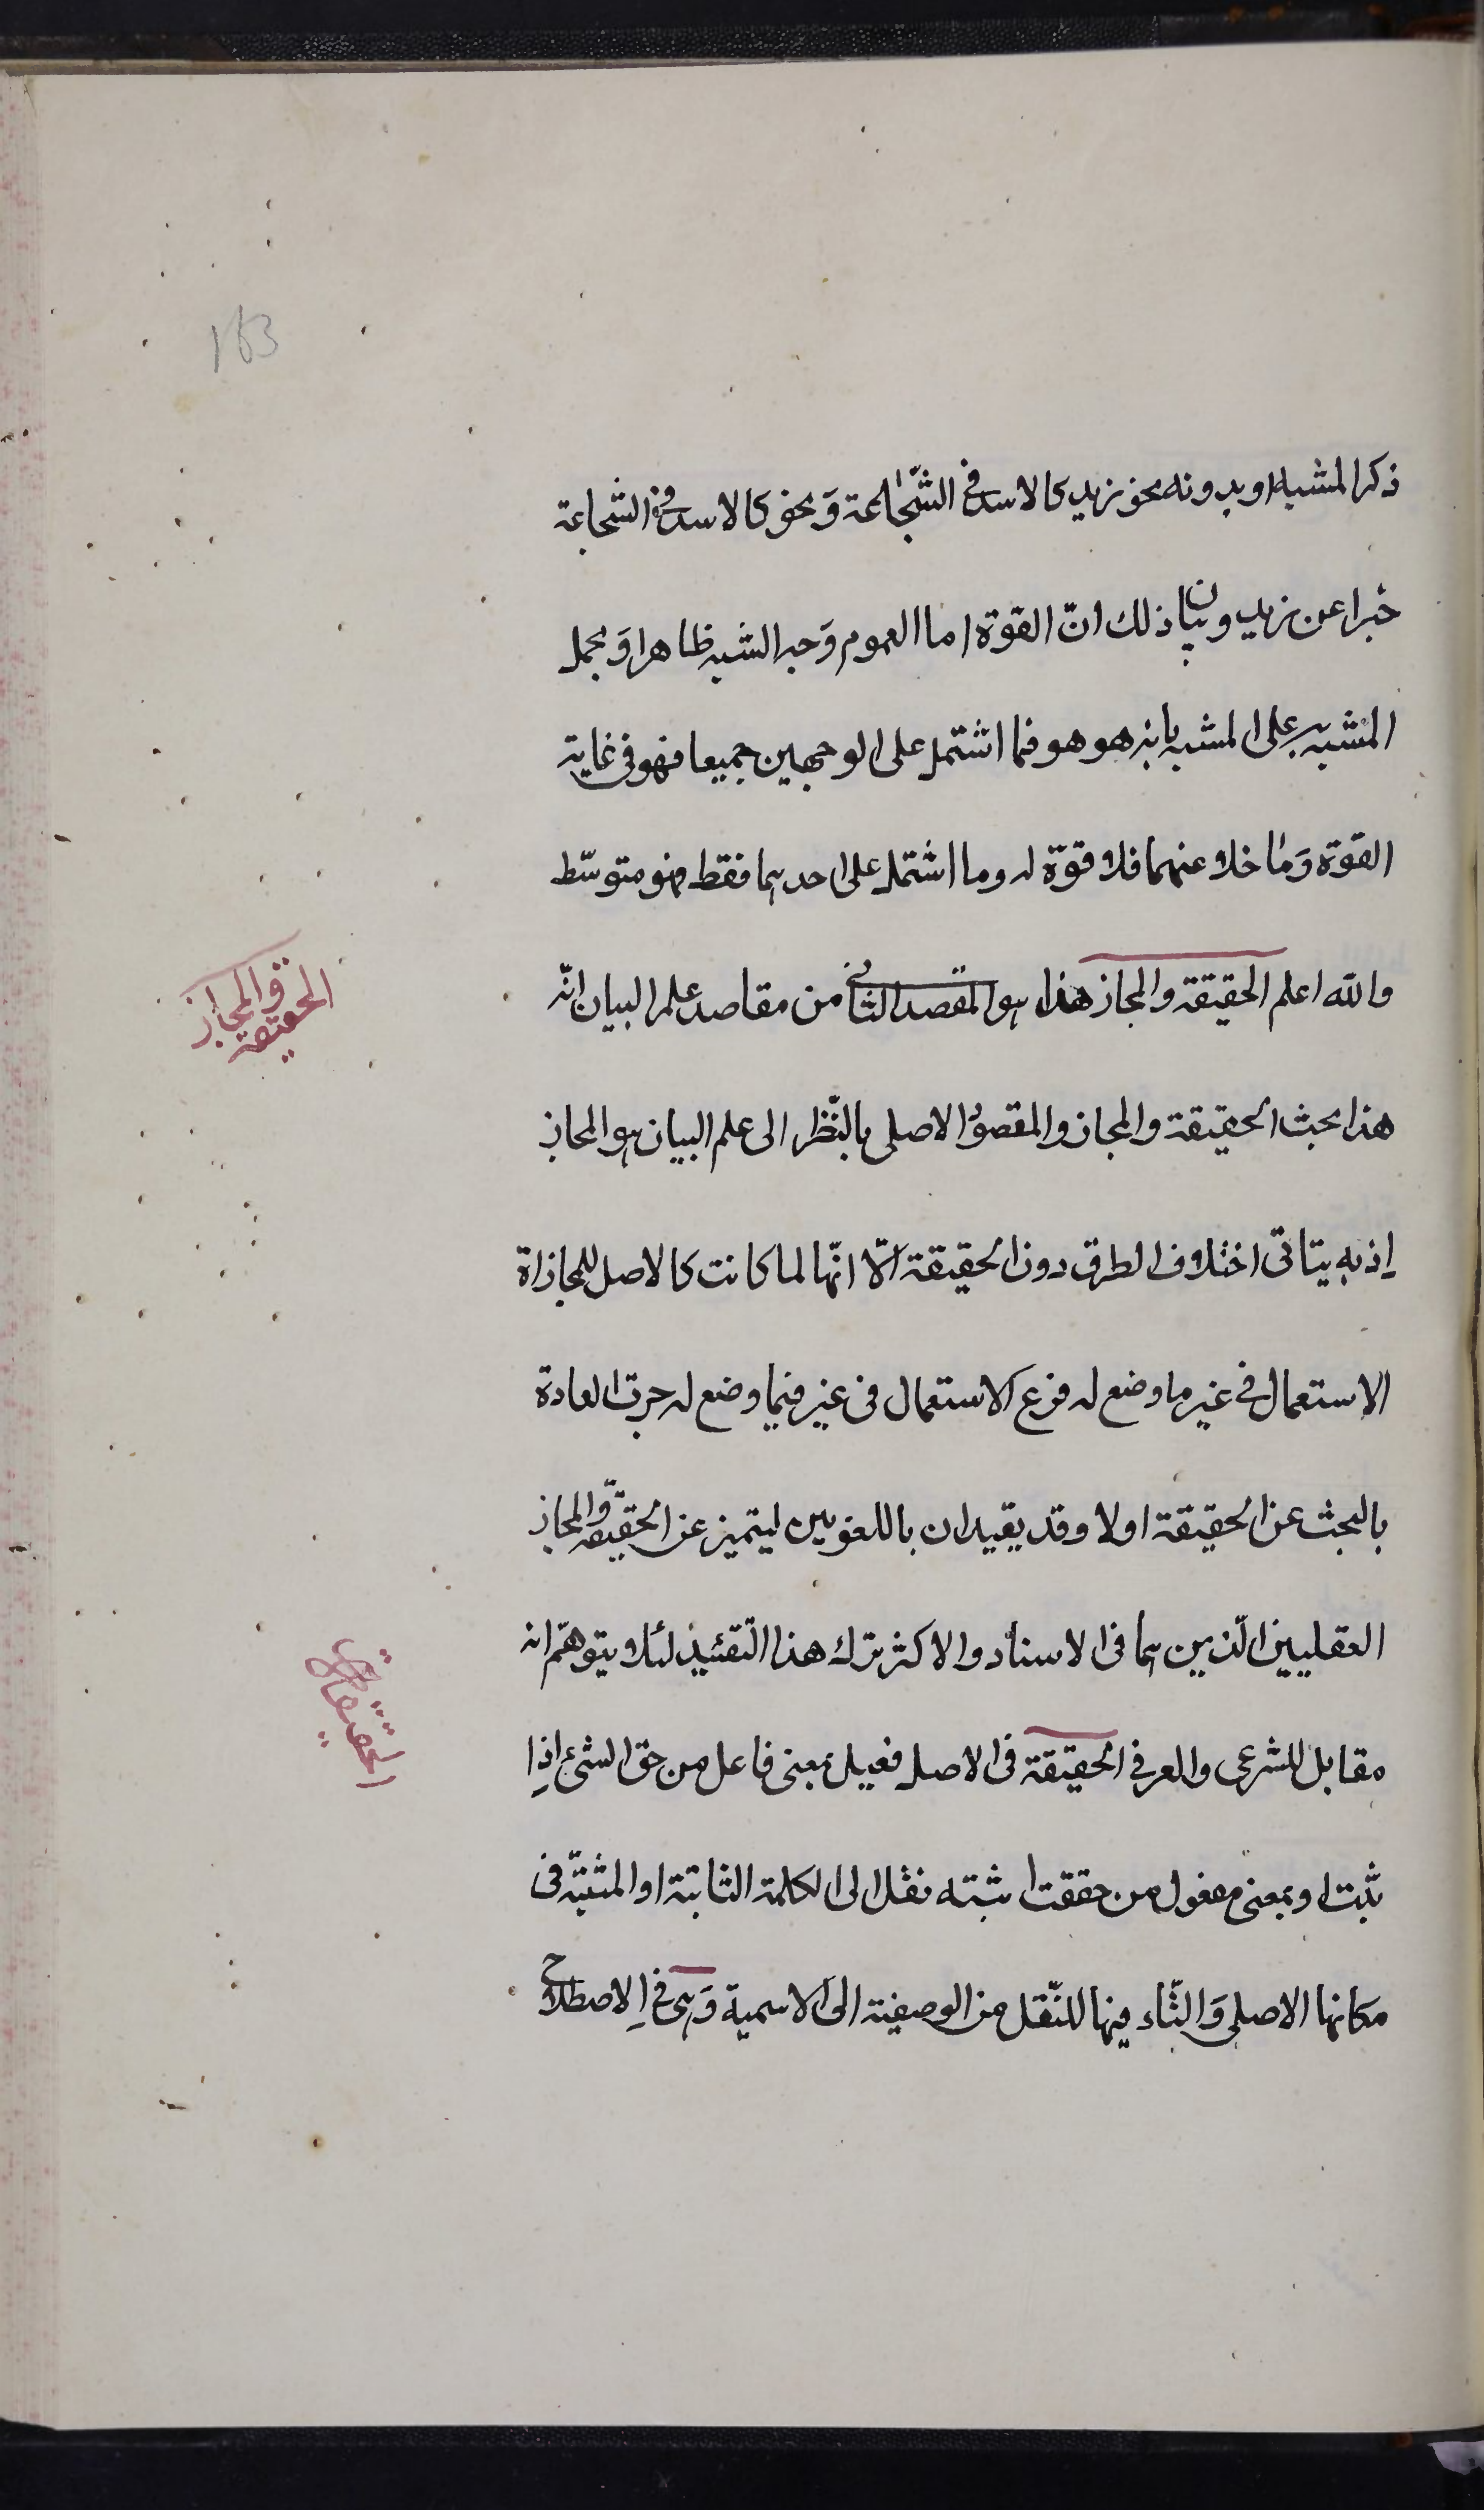 163
ذكر المشبه او بدونه نحو زيد كالاسد في الشّجاعة وَنحو كالاسد في الشجاعة
خبرا عن زيد وبيان ذلك انّ القوة اما العموم وَجه الشبه ظاهرا وَبحمل
المشبه به على المشبه بانه هو هو فما اشتمل على الوجهين جميعا فهو في غاية
القوة وَما خلا عنهما فلا قوّة له وما اشتمل على احدهما فقط فهو متوسّط
والله اعلم الحقيقة والمجاز هذا هو المقصد الثاني من مقاصد علم البيان انّه
هذا بحث الحقيقة والمجاز والمقصود الاصلى بالنّظر الى علم البيان هو المجاز
الحقيقة والمجاز
اِذ به يتاتى اختلاف الطرق دون الحقيقة الّا انّها لما كانت كالاصل للمجاز اذ
الاستعمال في غير ما وضع له فرع الاستعمال فى غير فيما وضع له جرت العادة
بالبحث عن الحقيقة اولا وقد يقيدان باللغويين ليتميز عن الحقيقة والمجاز
العقليين الّذين هما فى الاسناد والاكثر ترك هذا التّقئيد لئلا يتوهّم انه
مقابل للشرعى والعرفي الحقيقة فى الاصل فعيل بمعنى فاعل من حق الشئ اِذا
ثبت او بمعنى مفعول من حققت اثبته نقل الى الكلمة الثابتة او المثبتة فى
مكانها الاصلى وَالتّاء فيها للنّقل من الوصفية الى الاسمية وَهى في اِلاصطلاح